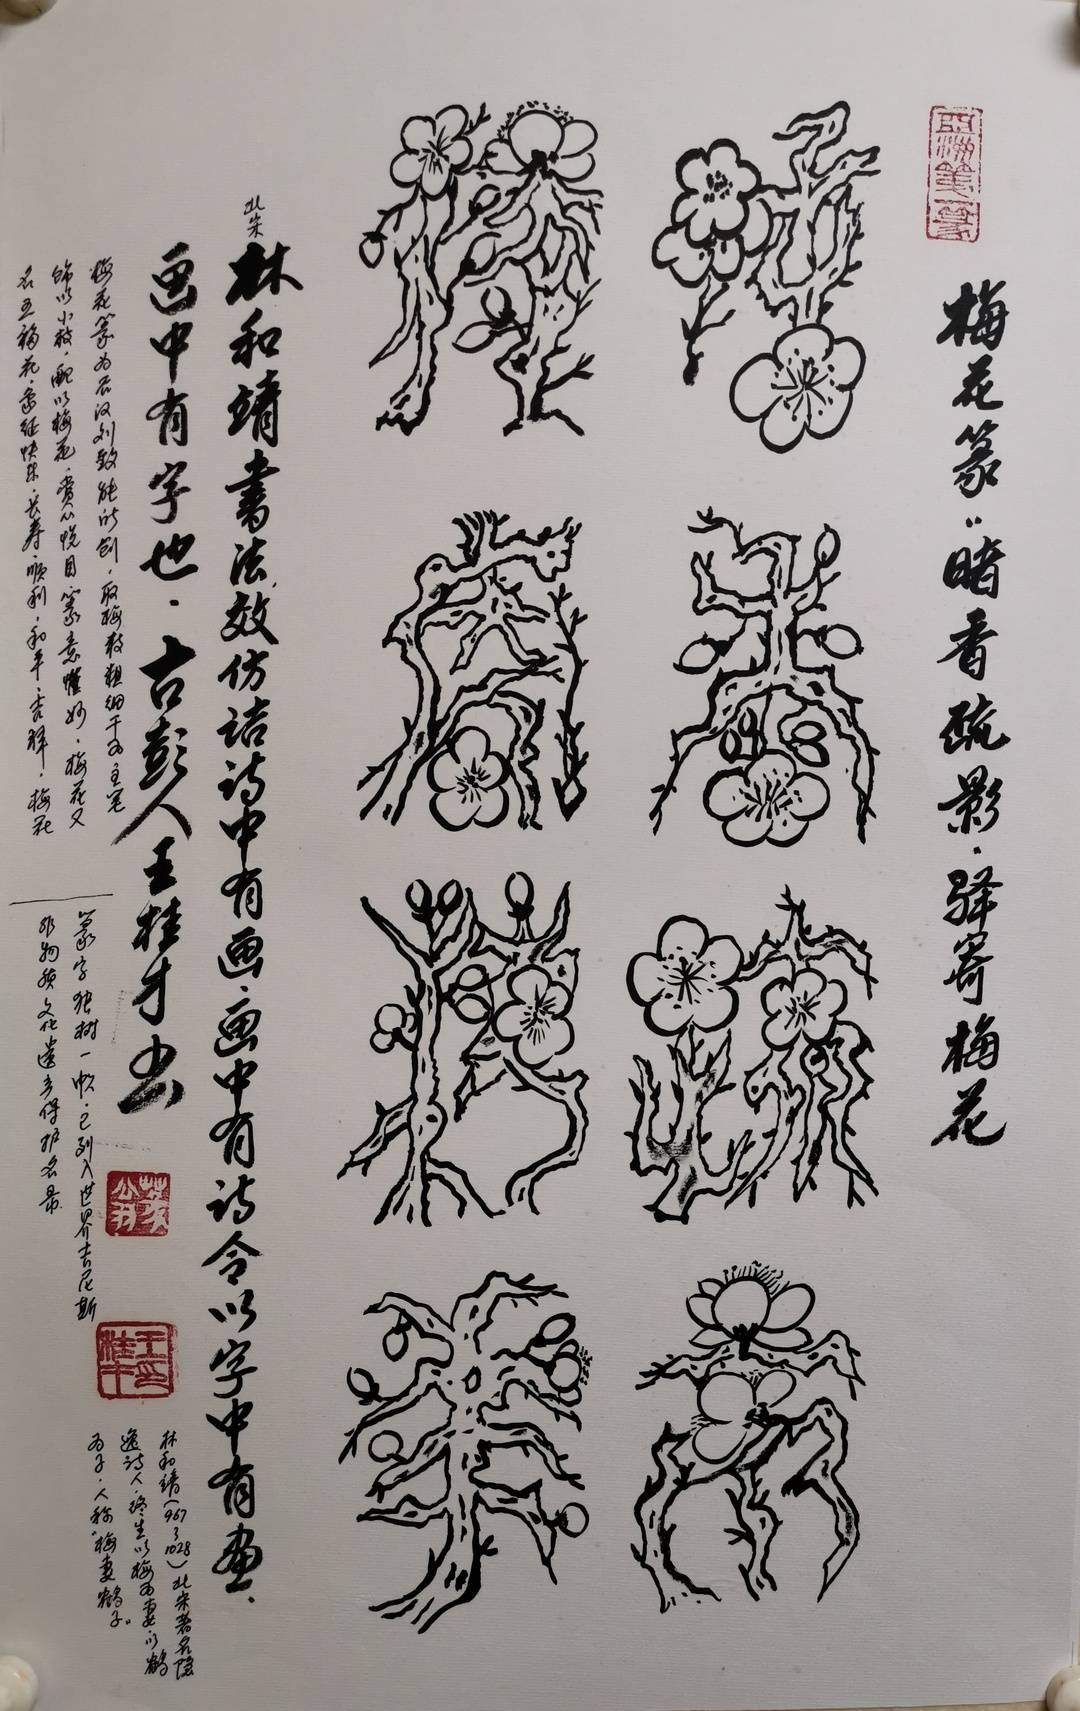 梅花篆“暗香疏影·驿寄梅花
北宋
林和靖书法效仿诘诗中有画·画中有诗令以字中有画·
画中有字也·古彭人王桂才书
梅花篆为后汉刘致能所创·取梅枝粗细干为主笔
饰以小枝·配以梅花·赏心悦目篆意惟妙·梅花又
名五福花·象征快乐·长寿·顺利·和平·吉祥·梅花
篆字独树一帜·已列入世界吉尼斯
非物质文化遗产保护名录
林和靖(967至1028)北宋著名隐
逸诗人·终生以梅为妻·以鹤
为子·人称“梅妻鹤子”
王桂才印